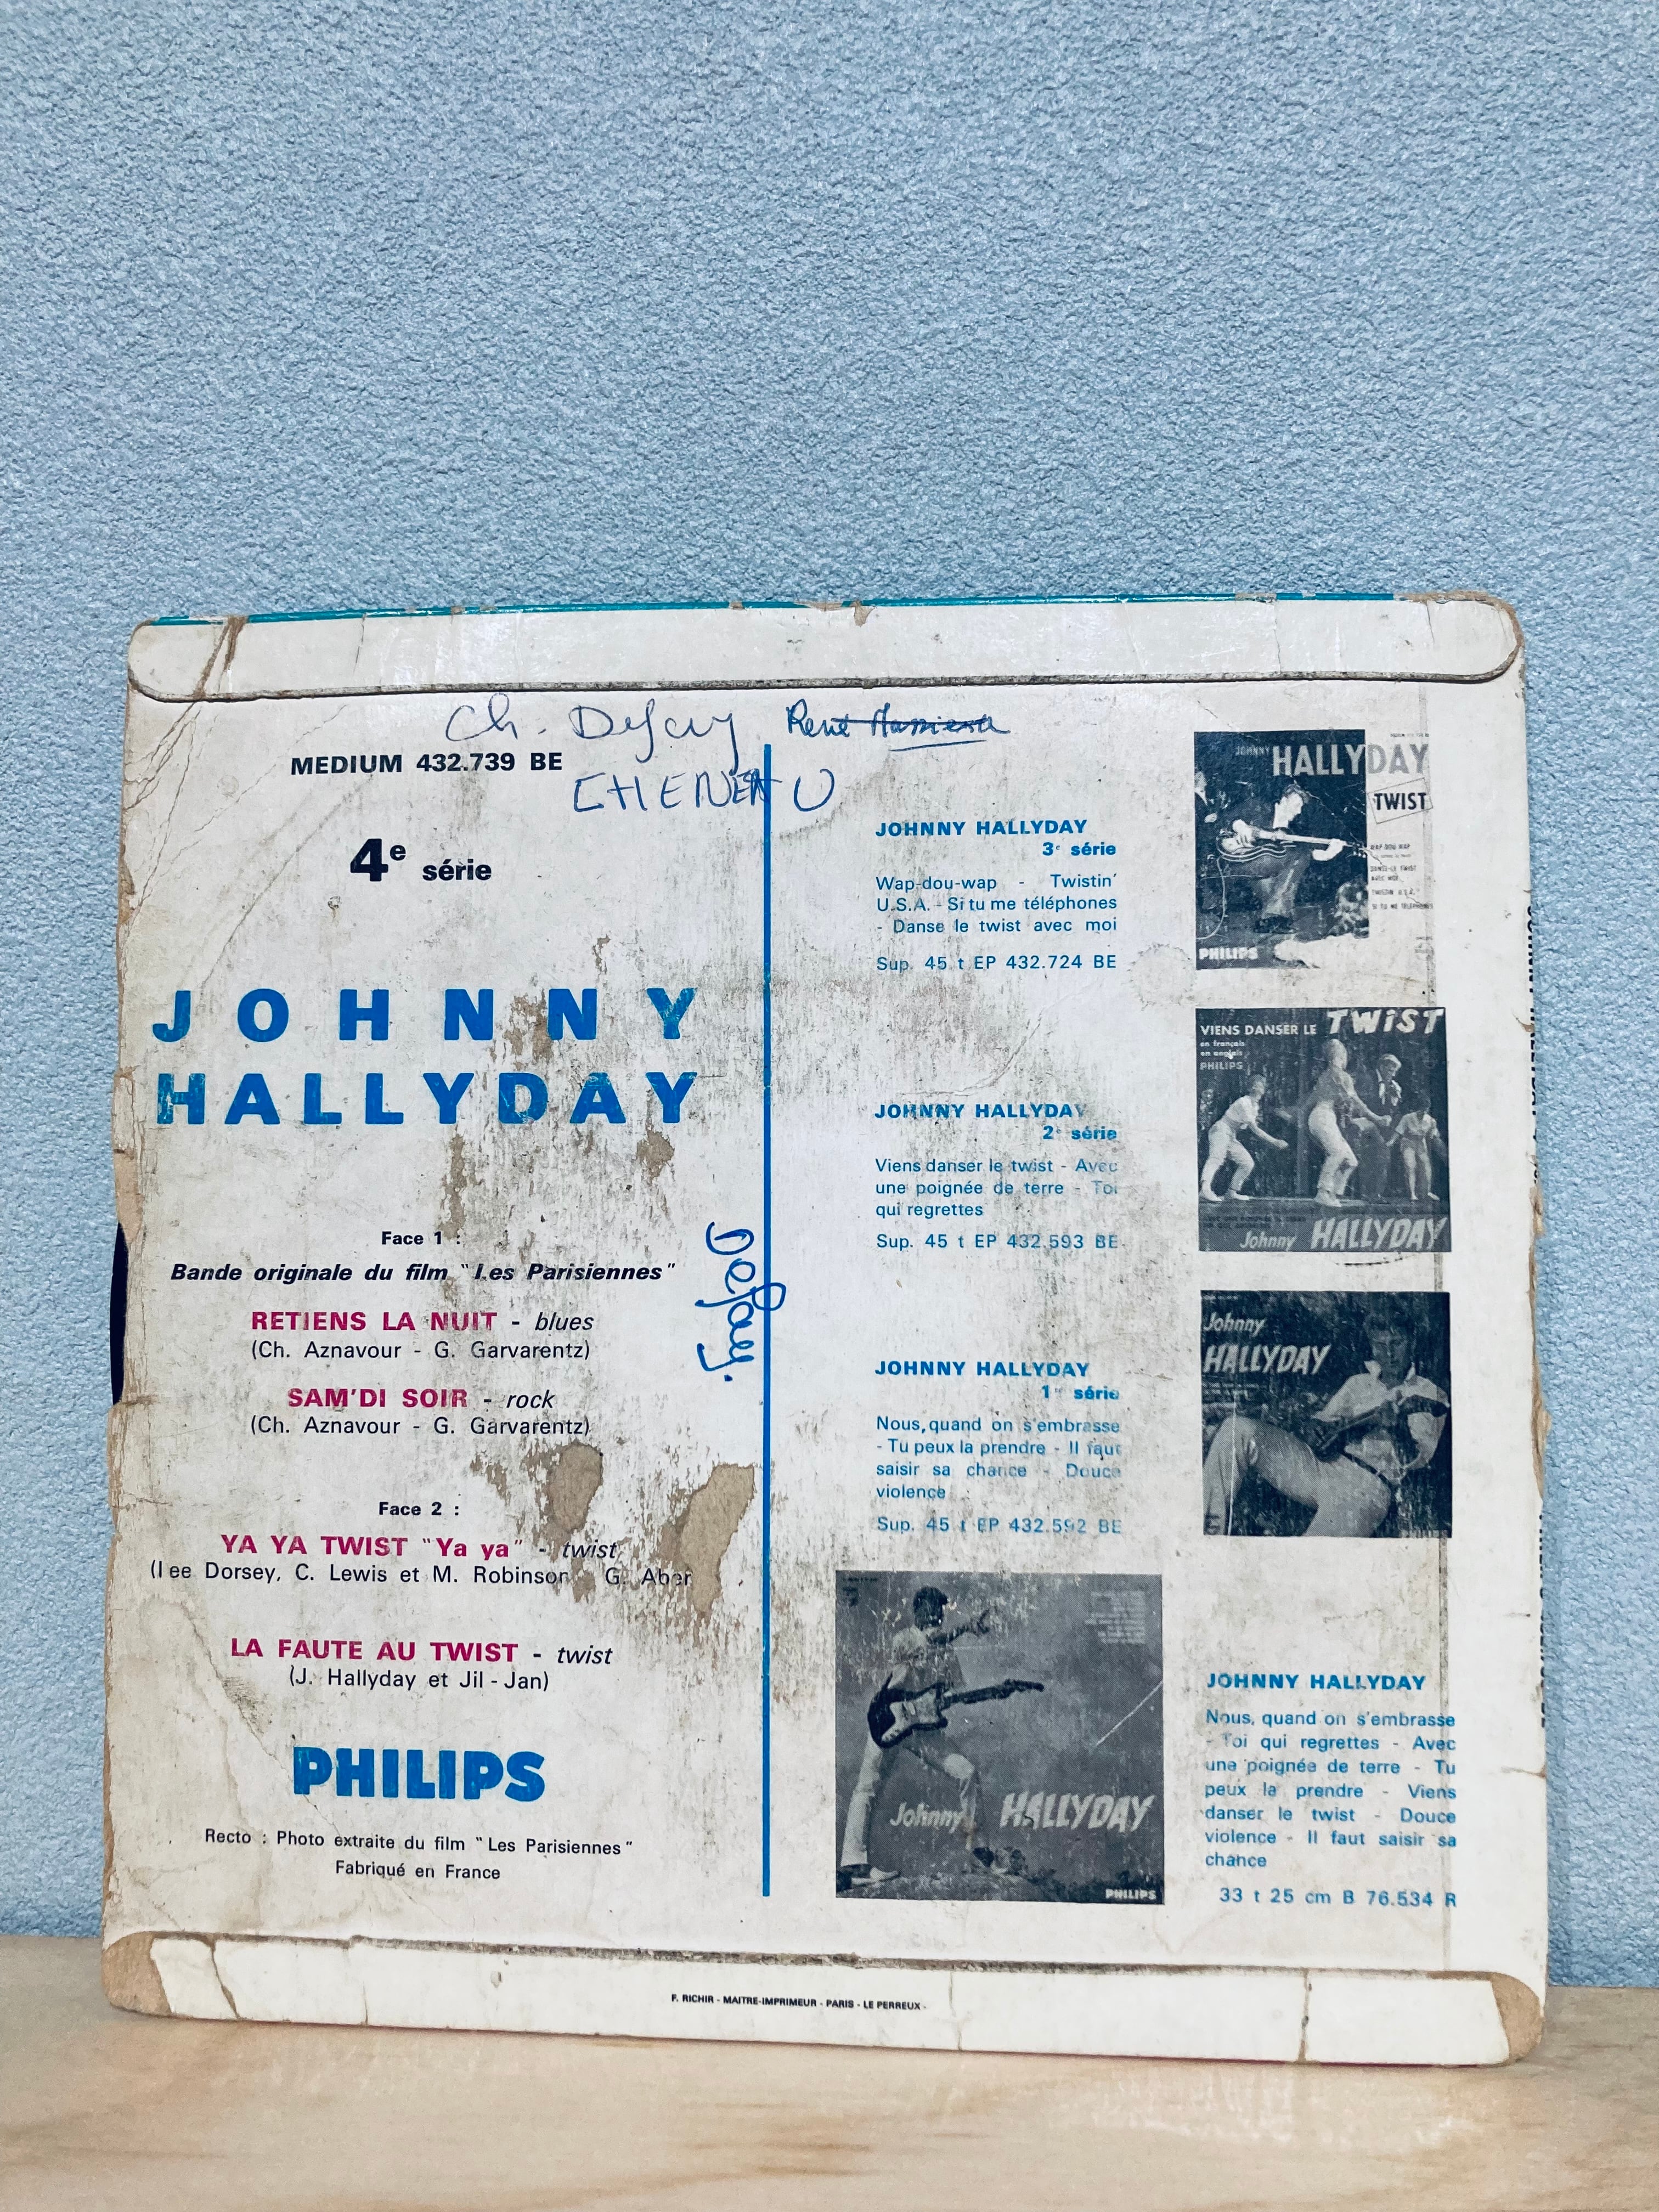 Ch. Defay
MEDIUM 432.739 BE
CHENEAU
4e série
JOHNNY
HALLYDAY
Face 1 :
Bande originale du film "Les Parisiennes"
RETIENS LA NUIT - blues
(Ch. Aznavour - G. Garvarentz)
SAM'DI SOIR - rock
(Ch. Aznavour - G. Garvarentz)
Face 2 :
YA YA TWIST "Ya ya" - twist
(Lee Dorsey, C. Lewis et M. Robinson G. Aber
LA FAUTE AU TWIST - twist
(J. Hallyday et Jil - Jan)
PHILIPS
Recto : Photo extraite du film "Les Parisiennes"
Fabriqué en France
Defay.
JOHNNY HALLYDAY
3e série
Wap-dou-wap - Twistin'
U.S.A. - Si tu me téléphones
- Danse le twist avec moi
Sup. 45 t EP 432.724 BE
JOHNNY HALLYDAY
TWIST
WAP DOU WAP
DANSE LE TWIST
AVEC MOI
TWISTIN U.S.A.
SI TU ME TELEPHONES
PHILIPS
JOHNNY HALLYDAY
2e série
Viens danser le twist - Avec
une poignée de terre - Toi
qui regrettes
Sup. 45 t EP 432.593 BE
VIENS DANSER LE TWIST
en français
en anglais
PHILIPS
Johnny HALLYDAY
JOHNNY HALLYDAY
1re série
Nous, quand on s'embrasse
- Tu peux la prendre - Il faut
saisir sa chance - Douce
violence
Sup. 45 t EP 432.592 BE
Johnny
HALLYDAY
PHILIPS
Johnny HALLYDAY
PHILIPS
JOHNNY HALLYDAY
Nous, quand on s'embrasse
- Toi qui regrettes - Avec
une poignée de terre - Tu
peux la prendre - Viens
danser le twist - Douce
violence - Il faut saisir sa
chance
33 t 25 cm B 76.534 R
F. RICHIR - MAITRE-IMPRIMEUR - PARIS - LE PERREUX -